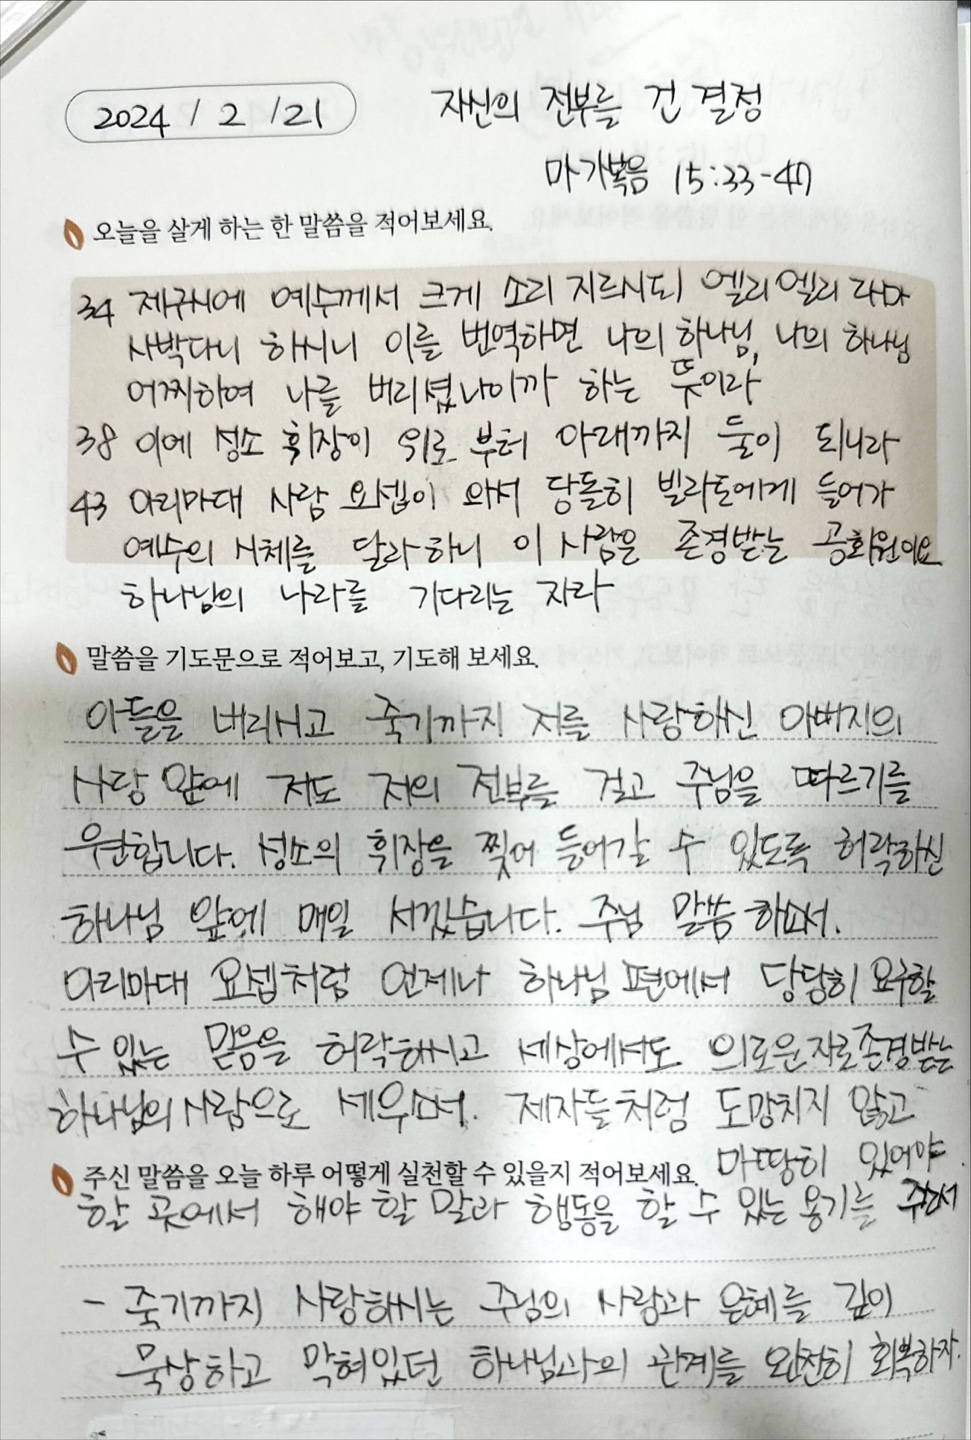 2024 / 2 / 21
자신의 전부를 건 결정
마가복음 15:33-47
오늘을 살게 하는 한 말씀을 적어보세요.
34 제구시에 예수께서 크게 소리 지르시되 엘리 엘리 라마
사박다니 하시니 이를 번역하면 나의 하나님, 나의 하나님
어찌하여 나를 버리셨나이까 하는 뜻이라
38 이에 성소 휘장이 위로 부터 아래까지 둘이 되니라
43 아리마대 사람 요셉이 와서 당돌히 빌라도에게 들어가
예수의 시체를 달라 하니 이 사람은 존경받는 공회원이요
하나님의 나라를 기다리는 자라
말씀을 기도문으로 적어보고, 기도해 보세요.
아들을 버리시고 죽기까지 저를 사랑하신 아버지의
사랑 앞에 저도 저의 전부를 걸고 주님을 따르기를
원합니다. 성소의 휘장을 찢어 들어갈 수 있도록 허락하신
하나님 앞에 매일 서겠습니다. 주님 말씀 하소서.
아리마대 요셉처럼 언제나 하나님 편에서 당당히 요구할
수 있는 믿음을 허락하시고 세상에서도 의로운 자로 존경받는
하나님의 사람으로 세우소서. 제자들처럼 도망치지 않고
마땅히 있어야
주신 말씀을 오늘 하루 어떻게 실천할 수 있을지 적어보세요.
할 곳에서 해야 할 말과 행동을 할 수 있는 용기를 주소서
- 죽기까지 사랑하시는 주님의 사랑과 은혜를 깊이
묵상하고 막혀있던 하나님과의 관계를 완전히 회복하자.